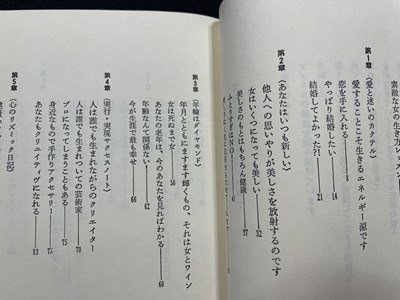 素敵な女の生き方レッスン
第1章
〈愛と迷いのカクテル〉
愛することこそ生きるエネルギー源です
恋を手に入れる——8
やっぱり結婚したい——14
結婚してよかった?!——21
第2章
〈あなたはいつも新しい〉
他人への思いやりが美しさを放射するのです
女はいくつになっても美しい——32
美しさのもとはもちろん健康——37
ふとりすぎはNO!
第3章
〈年輪はダイヤモンド〉
年月とともにますます輝くもの、それは女とワイン
女は死ぬまで女——56
あなたの老年は、今のあなたを見ればわかる——60
年齢なんて関係ない——62
今が生涯で最も幸せ——66
第4章
〈実行・実現サクセスノート〉
人は誰でも生まれながらのクリエイター
人は誰でも生まれついての芸術家——70
プロになってしまうこともある——75
身近なもので手作りアクセサリー——78
あなたもクリエイティヴになれる——83
第5章
〈心のリズミック日記〉